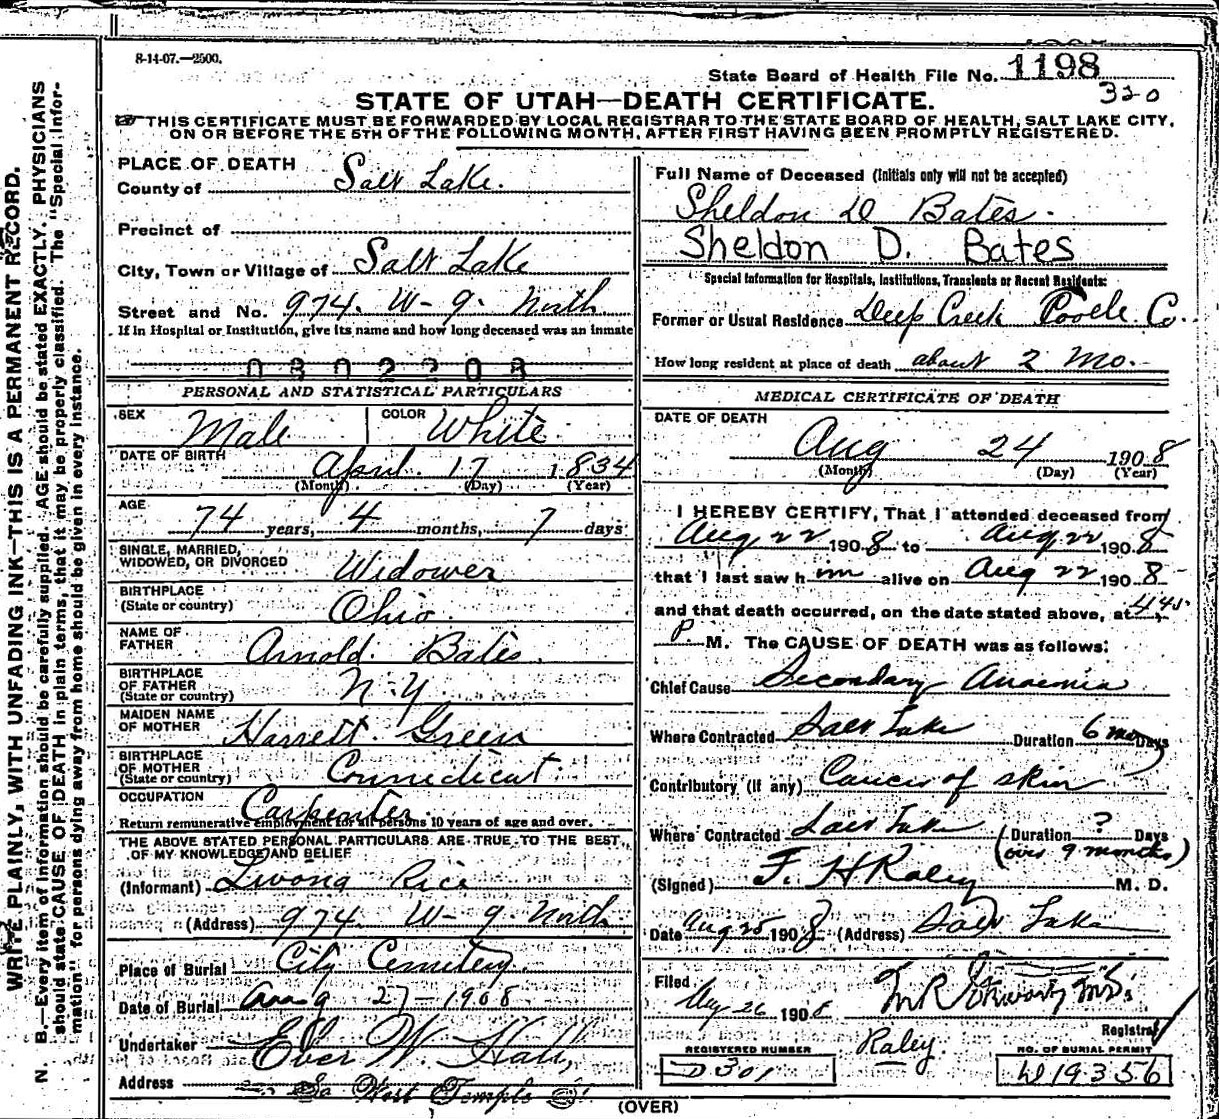 8-14-07.—2500.
State Board of Health File No. 1198
320
STATE OF UTAH—DEATH CERTIFICATE.
THIS CERTIFICATE MUST BE FORWARDED BY LOCAL REGISTRAR TO THE STATE BOARD OF HEALTH, SALT LAKE CITY,
ON OR BEFORE THE 5TH OF THE FOLLOWING MONTH, AFTER FIRST HAVING BEEN PROMPTLY REGISTERED.
WRITE PLAINLY, WITH UNFADING INK—THIS IS A PERMANENT RECORD.
N. B.—Every item of information should be carefully supplied. AGE should be stated EXACTLY. PHYSICIANS
should state CAUSE OF DEATH in plain terms, that it may be properly classified. The "Special Infor-
mation" for persons dying away from home should be given in every instance.
PLACE OF DEATH
County of Salt Lake.
Precinct of
City, Town or Village of Salt Lake
Street and No. 974. W- 9. North
If in Hospital or Institution, give its name and how long deceased was an inmate
0302208
PERSONAL AND STATISTICAL PARTICULARS
SEX Male COLOR White
DATE OF BIRTH April 17 1834
(Month) (Day) (Year)
AGE 74 years, 4 months, 7 days
SINGLE, MARRIED,
WIDOWED, OR DIVORCED Widower
BIRTHPLACE
(State or country) Ohio.
NAME OF
FATHER Arnold. Bates.
BIRTHPLACE
OF FATHER
(State or country) N-Y
MAIDEN NAME
OF MOTHER Harrett. Green
BIRTHPLACE
OF MOTHER
(State or country) Connecticut
OCCUPATION Carpenter
Return remunerative employment for all persons 10 years of age and over.
THE ABOVE STATED PERSONAL PARTICULARS ARE TRUE TO THE BEST
OF MY KNOWLEDGE AND BELIEF
(Informant) Rice
(Address) 974. W- 9. North
Place of Burial City Cemetery.
Date of Burial Aug 27-1908
Undertaker Eber W. Hall,
Address So West Temple St.
Full Name of Deceased (Initials only will not be accepted)
Sheldon D Bates.
Sheldon D. Bates
Special Information for Hospitals, Institutions, Transients or Recent Residents:
Former or Usual Residence Deep Creek Tooele Co.
How long resident at place of death about 2 Mo.
MEDICAL CERTIFICATE OF DEATH
DATE OF DEATH
Aug 24 1908
(Month) (Day) (Year)
I HEREBY CERTIFY, That I attended deceased from
Aug 22 1908 to Aug 22 1908
that I last saw him alive on Aug 22 1908
and that death occurred, on the date stated above, at 4.45
P. M. The CAUSE OF DEATH was as follows:
Chief Cause Secondary Anaemia
Where Contracted Salt Lake Duration 6 mos Days
Contributory (if any) Cancer of skin
Where Contracted Salt Lake (Duration ? Days
(over 9 months)
(Signed) F. H Raley M. D.
Date Aug 25 1908 (Address) Salt Lake
Filed Aug 26 1908
Registrar
Raley.
REGISTERED NUMBER
D301
NO. OF BURIAL PERMIT
W19356
(OVER)